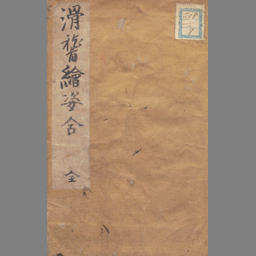 滑稽繪姿合
全